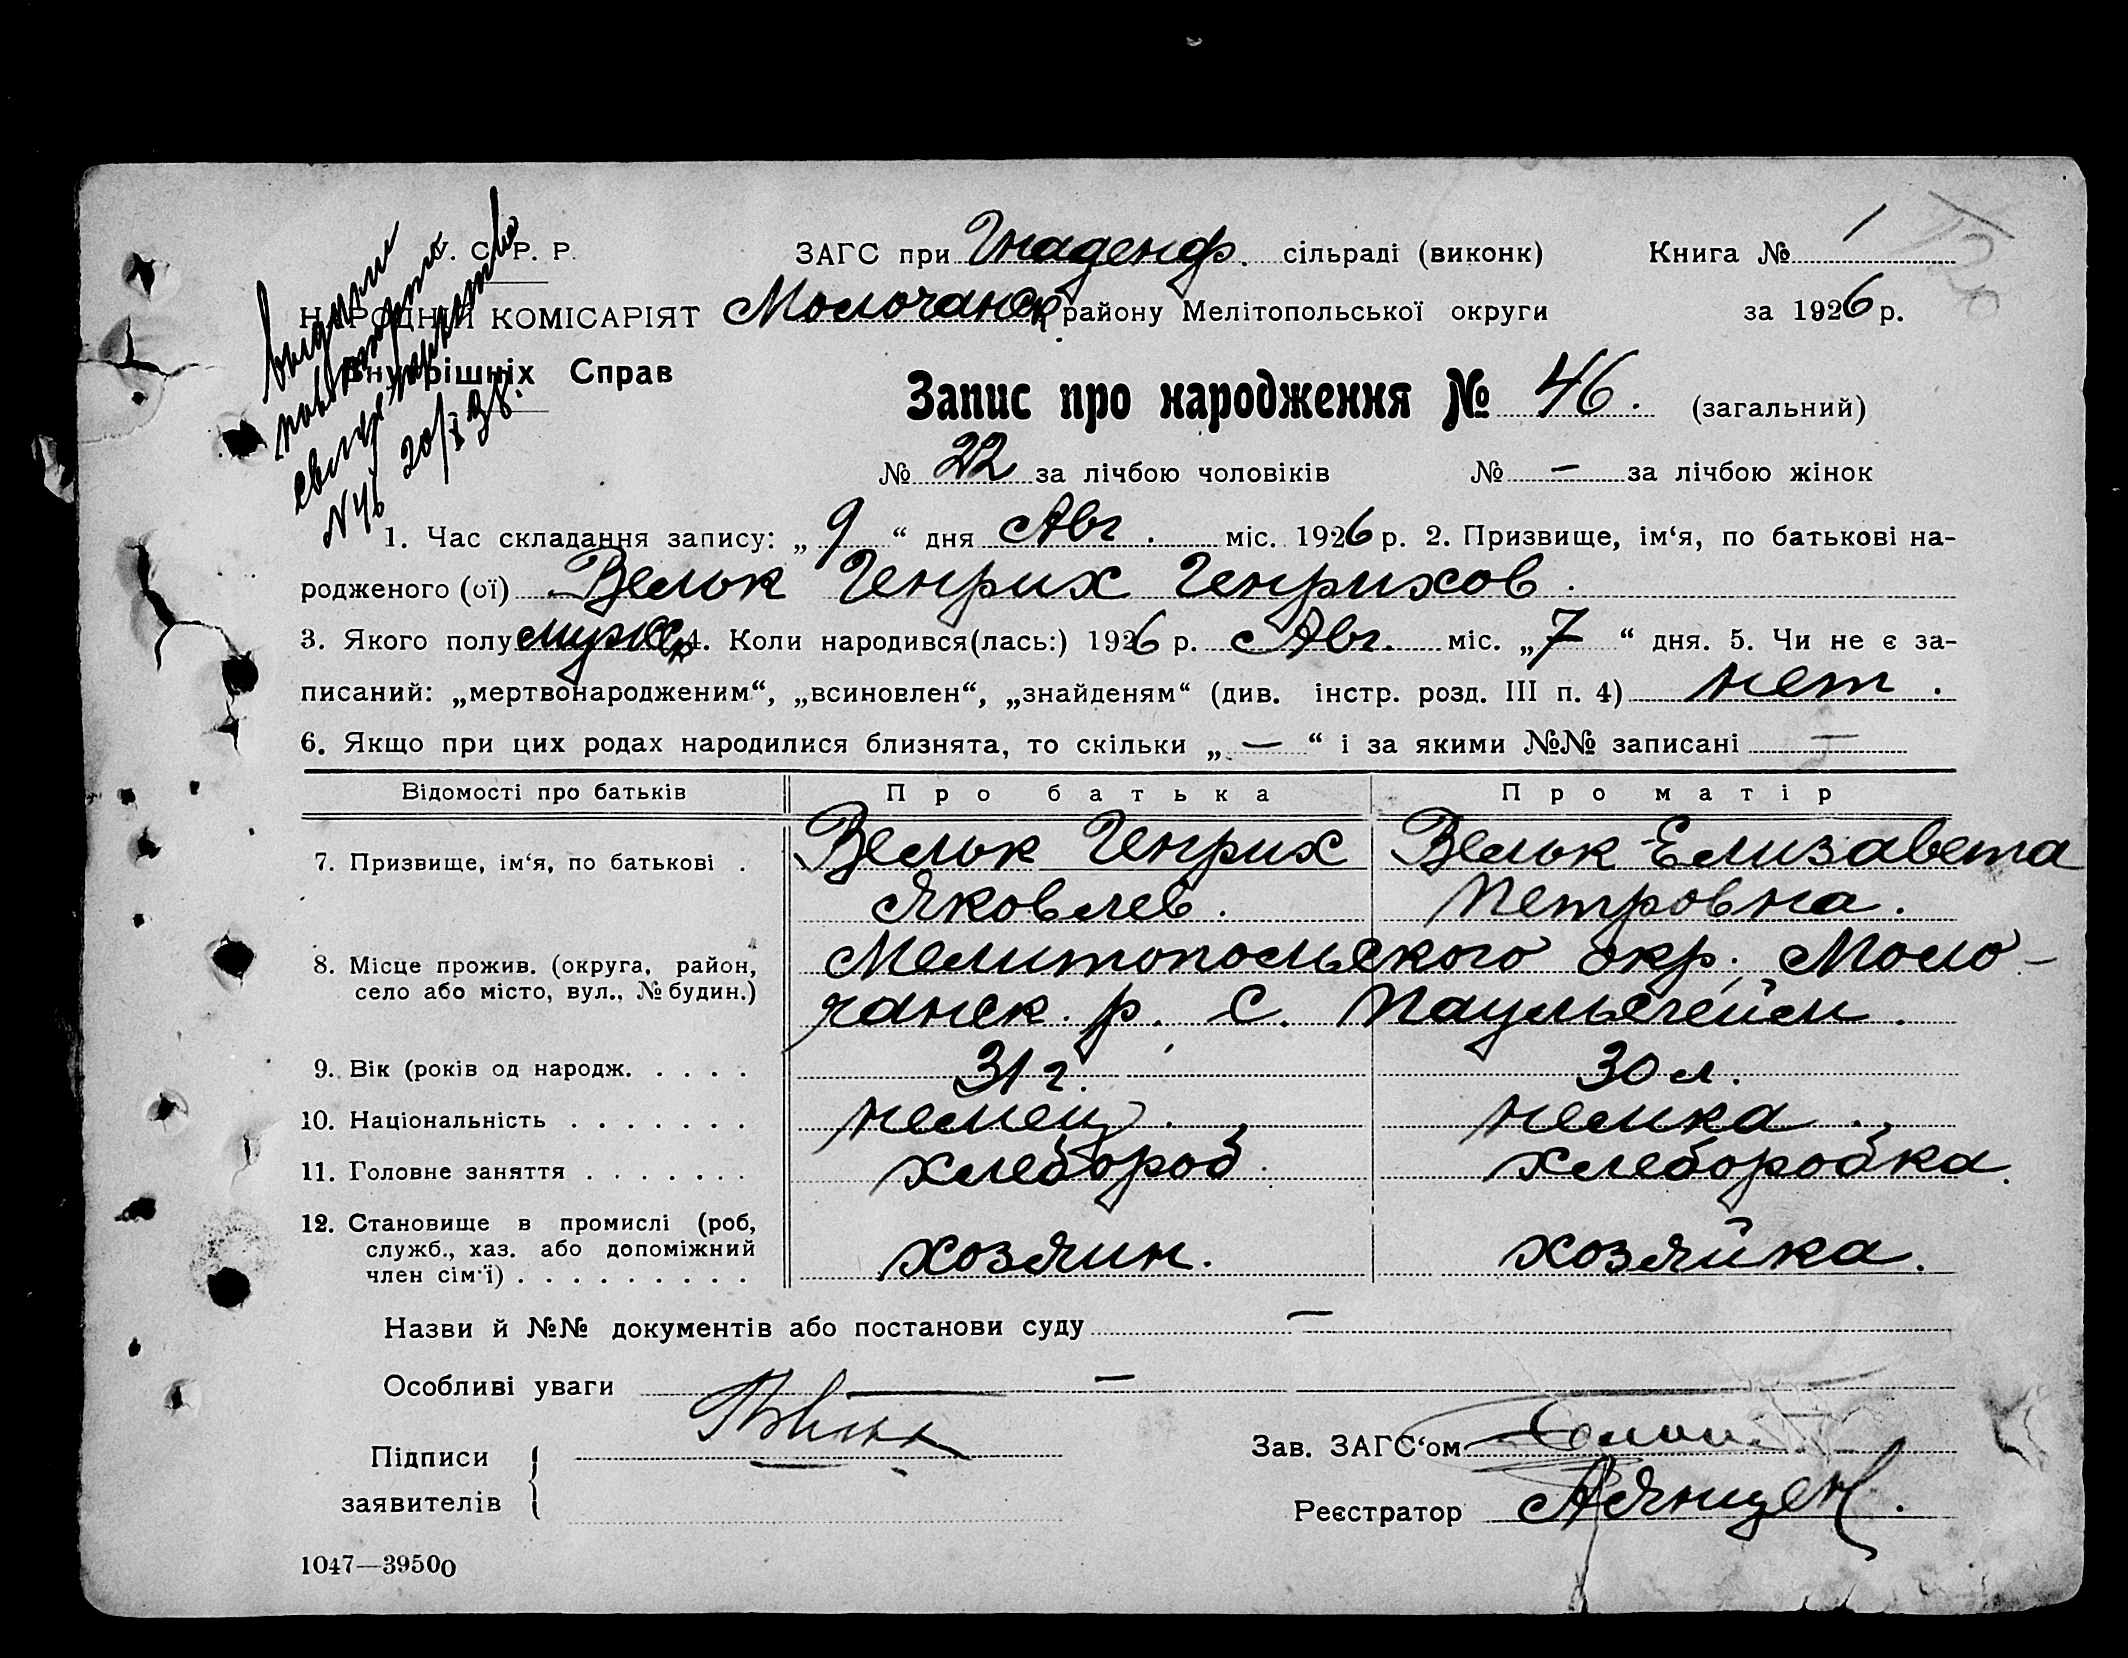 С. Р. Р.
ЗАГС при Гнаденф. сільраді (виконк)
Книга № 1
НАРОДНІЙ КОМІСАРІЯТ
Молочанск району Мелітопольської округи
за 1926 р.
Внутрішніх Справ
Выдано
повторно
свид.
N 46 20/X 38.
Запис про народження № 46. (загальний)
№ 22 за лічбою чоловіків № — за лічбою жінок
1. Час складання запису: „9“ дня Авг. міс. 1926 р. 2. Призвище, ім‘я, по батькові на-
родженого (ої) Велк Генрих Генрихов.
3. Якого полу мужск 4. Коли народився(лась:) 1926 р. Авг. міс. „7“ дня. 5. Чи не є за-
писаний: „мертвонародженим“, „всиновлен“, „знайденям“ (див. інстр. розд. III п. 4) нет.
6. Якщо при цих родах народилися близнята, то скільки „—“ і за якими №№ записані —
Відомості про батьків Про батька Про матір
7. Призвище, ім‘я, по батькові . Велк Генрих Велк Елизавета
Яковлев. Петровна.
8. Місце прожив. (округа, район, Мелитопольского окр. Моло-
село або місто, вул., № будин.) чанск. р. С. Паульсгейм.
9. Вік (років од народж. . . . . 31 г. 30 л.
10. Національність . . . . . . . немец. немка.
11. Головне заняття . . . . . . . хлебороб. хлеборобка.
12. Становище в промислі (роб,
служб., хаз. або допоміжний хозяин. хозяйка.
член сім‘ї) . . . . . . . . .
Назви й №№ документів або постанови суду —
Особливі уваги —
Підписи
заявителів
Зав. ЗАГС‘ом
Реєстратор АЯнцен.
1047—39500